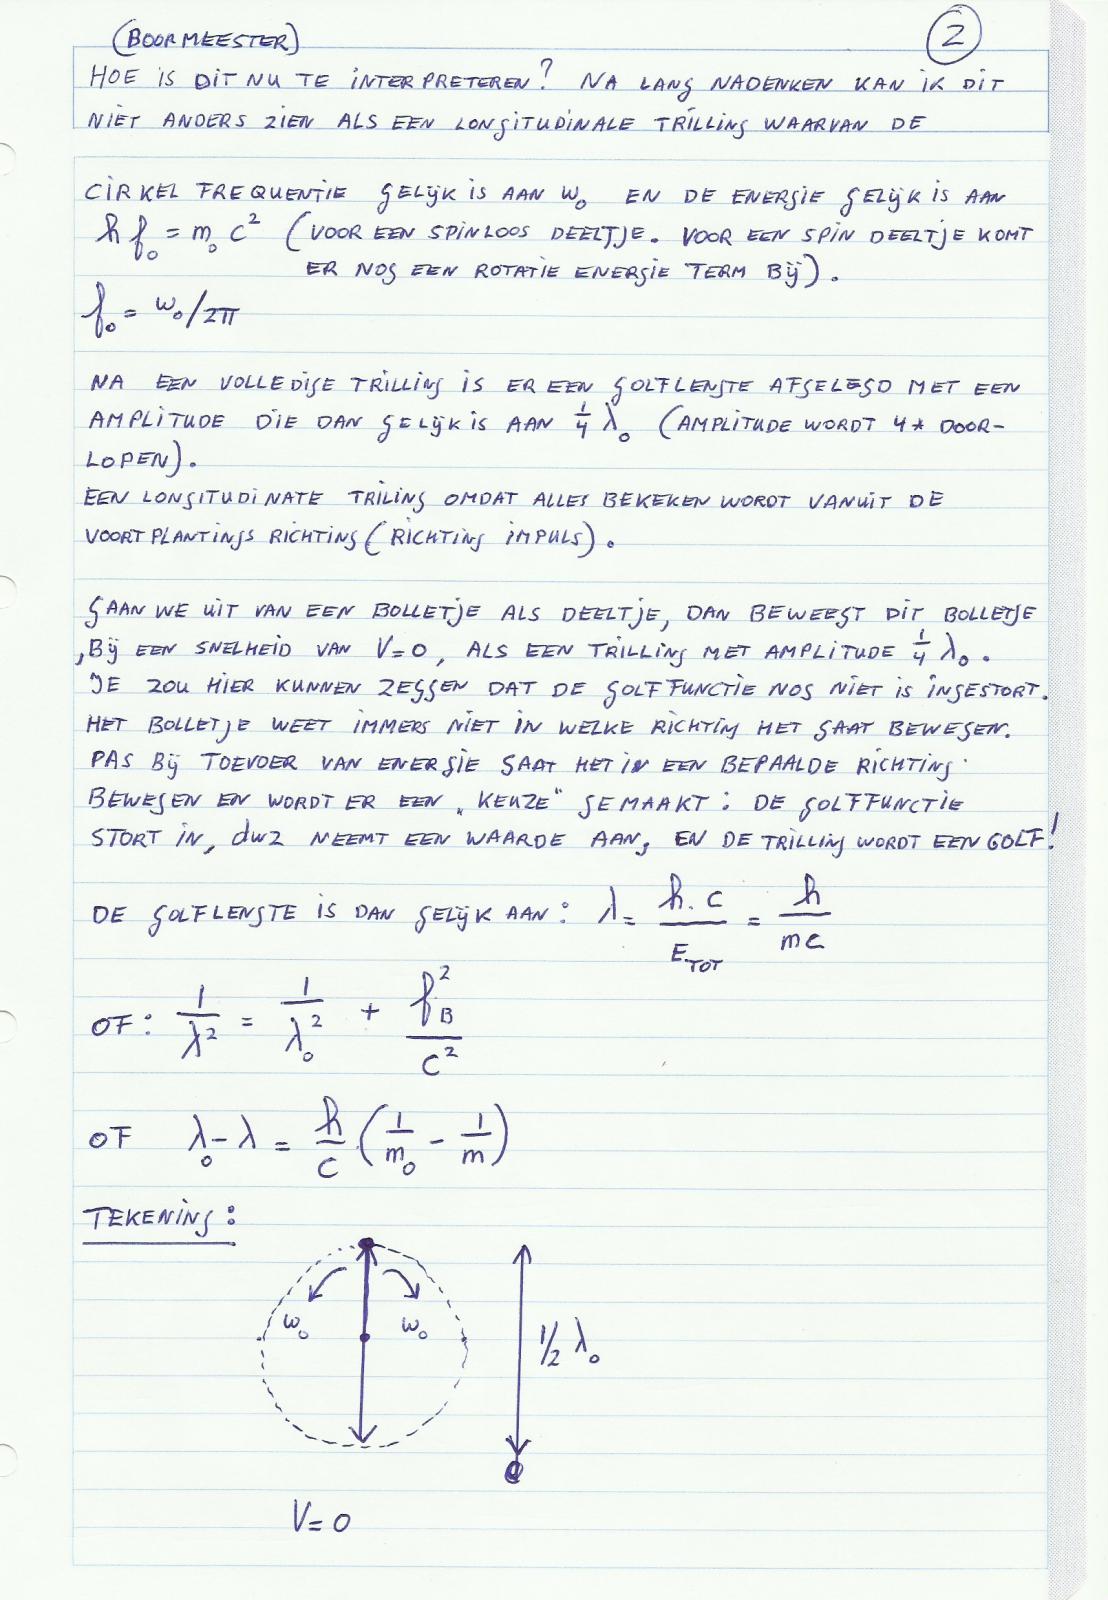 (BOORMEESTER)
2
HOE IS DIT NU TE INTERPRETEREN? NA LANG NADENKEN KAN IK DIT
NIET ANDERS ZIEN ALS EEN LONGITUDINALE TRILLING WAARVAN DE
CIRKEL FREQUENTIE GELIJK IS AAN ω₀ EN DE ENERGIE GELIJK IS AAN
h f₀ = m₀ c² (VOOR EEN SPINLOOS DEELTJE. VOOR EEN SPIN DEELTJE KOMT
ER NOG EEN ROTATIE ENERGIE TERM BIJ).
f₀ = ω₀/2π
NA EEN VOLLEDIGE TRILLING IS ER EEN GOLFLENGTE AFGELEGD MET EEN
AMPLITUDE DIE DAN GELIJK IS AAN 1/4 λ₀ (AMPLITUDE WORDT 4* DOOR-
LOPEN).
EEN LONGITUDINATE TRILING OMDAT ALLES BEKEKEN WORDT VANUIT DE
VOORTPLANTINGS RICHTING (RICHTING IMPULS).
GAAN WE UIT VAN EEN BOLLETJE ALS DEELTJE, DAN BEWEEGT DIT BOLLETJE
, BIJ EEN SNELHEID VAN V=0, ALS EEN TRILLING MET AMPLITUDE 1/4 λ₀.
JE ZOU HIER KUNNEN ZEGGEN DAT DE GOLFFUNCTIE NOG NIET IS INGESTORT.
HET BOLLETJE WEET IMMERS NIET IN WELKE RICHTING HET GAAT BEWEGEN.
PAS BIJ TOEVOER VAN ENERGIE GAAT HET IN EEN BEPAALDE RICHTING
BEWEGEN EN WORDT ER EEN „KEUZE" GEMAAKT: DE GOLFFUNCTIE
STORT IN, dwz NEEMT EEN WAARDE AAN, EN DE TRILLING WORDT EEN GOLF!
DE GOLFLENGTE IS DAN GELIJK AAN: λ = h.c / E_TOT = h / mc
OF: 1/λ² = 1/λ₀² + f_B²/c²
OF λ₀ - λ = h/c (1/m₀ - 1/m)
TEKENING:
ω₀ ω₀
1/2 λ₀
V=0